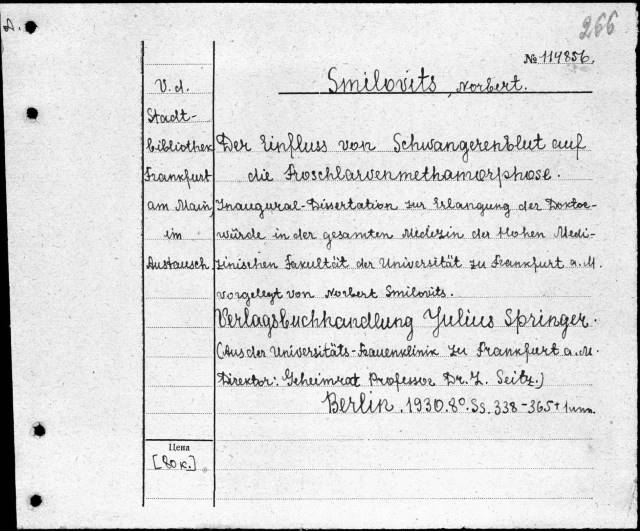 266
№ 114856.
Smilovits, Norbert.
V. d.
Stadt-
bibliothek
Frankfurt
am Main,
im
Austausch
Der Einfluss von Schwangerenblut auf
die Froschlarvenmethamorphose.
Inaugural-Dissertation zur Erlangung der Doktor-
würde in der gesamten Medezin der Hohen Medi-
zinischen Fakultät der Universität zu Frankfurt a. M.
vorgelegt von Norbert Smilovits.
Verlagsbuchhandlung Julius Springer.
(Aus der Universitäts-Frauenklinik zu Frankfurt a. M.
Direktor: Geheimrat Professor Dr. L. Seitz.)
Berlin. 1930. 8°. Ss. 338-365 + 1 unn.
Цена
[80 к.]